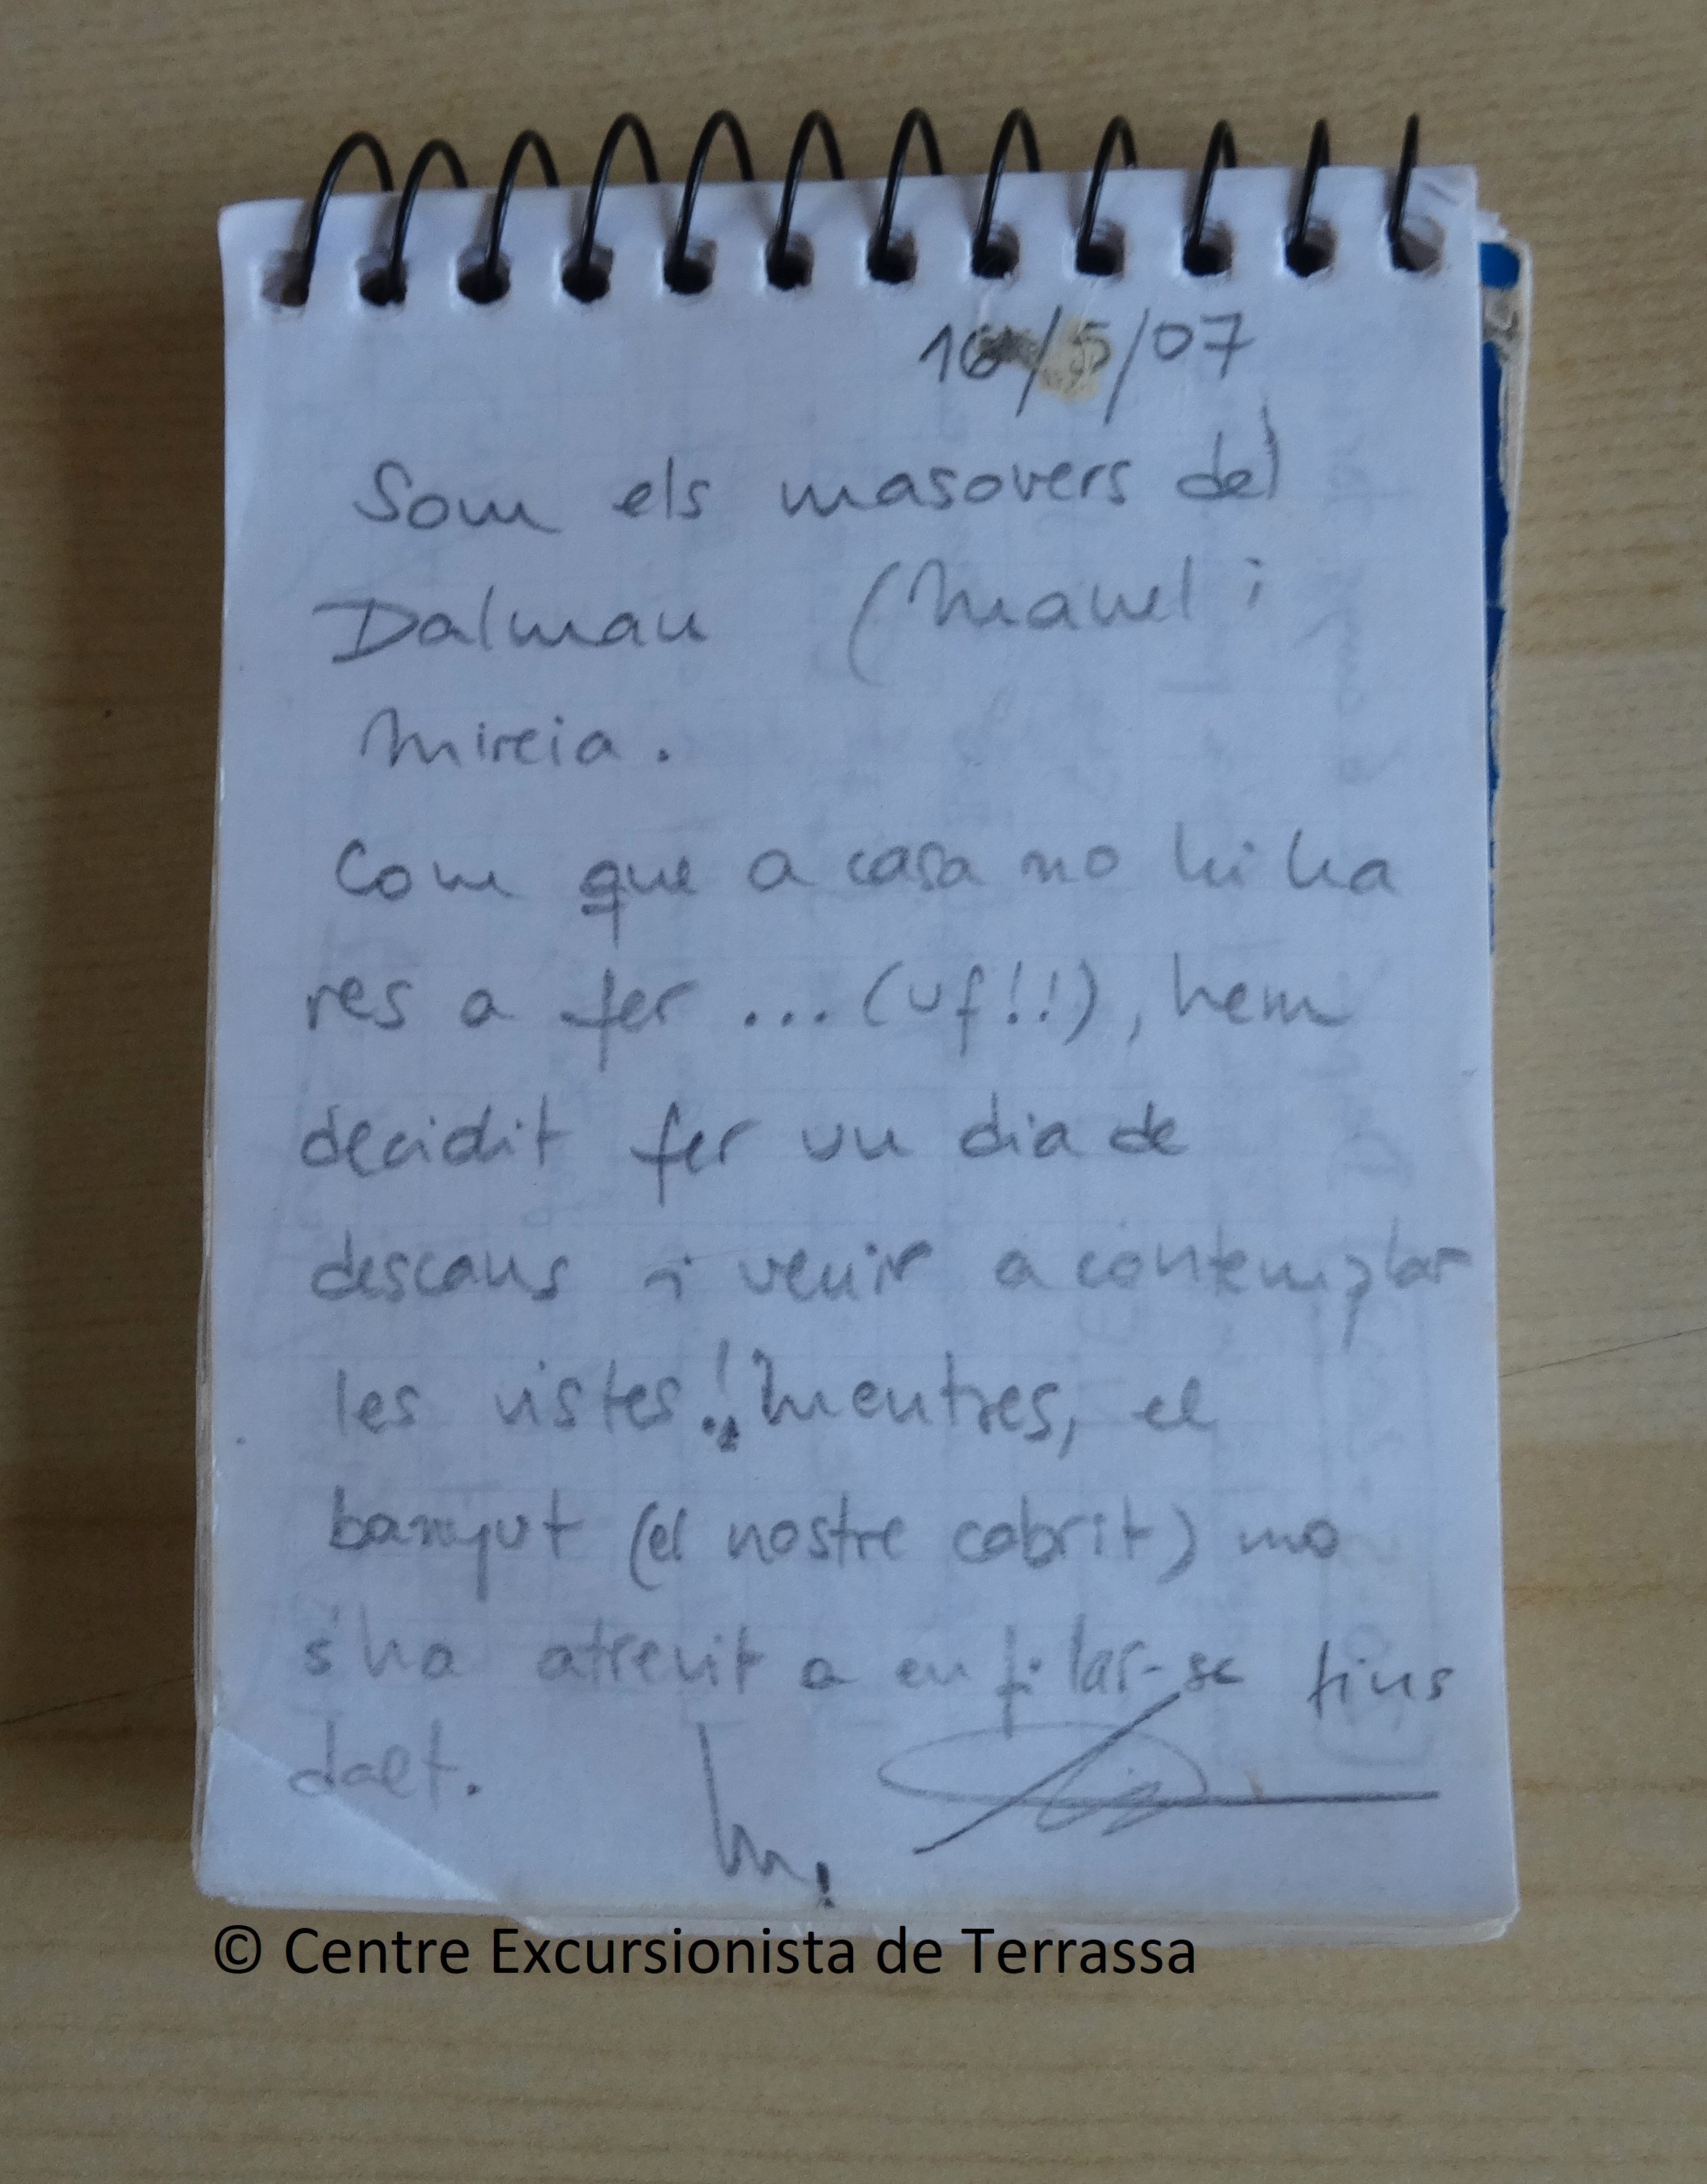 16/5/07
Som els masovers del
Dalmau (Manel i
Mireia.
Com que a casa no hi ha
res a fer ... (uf!!), hem
decidit fer un dia de
descans i venir a contemplar
les vistes! Mentres, el
banyut (el nostre cabrit) no
s'ha atrevit a enfilar-se fins
dalt.
© Centre Excursionista de Terrassa